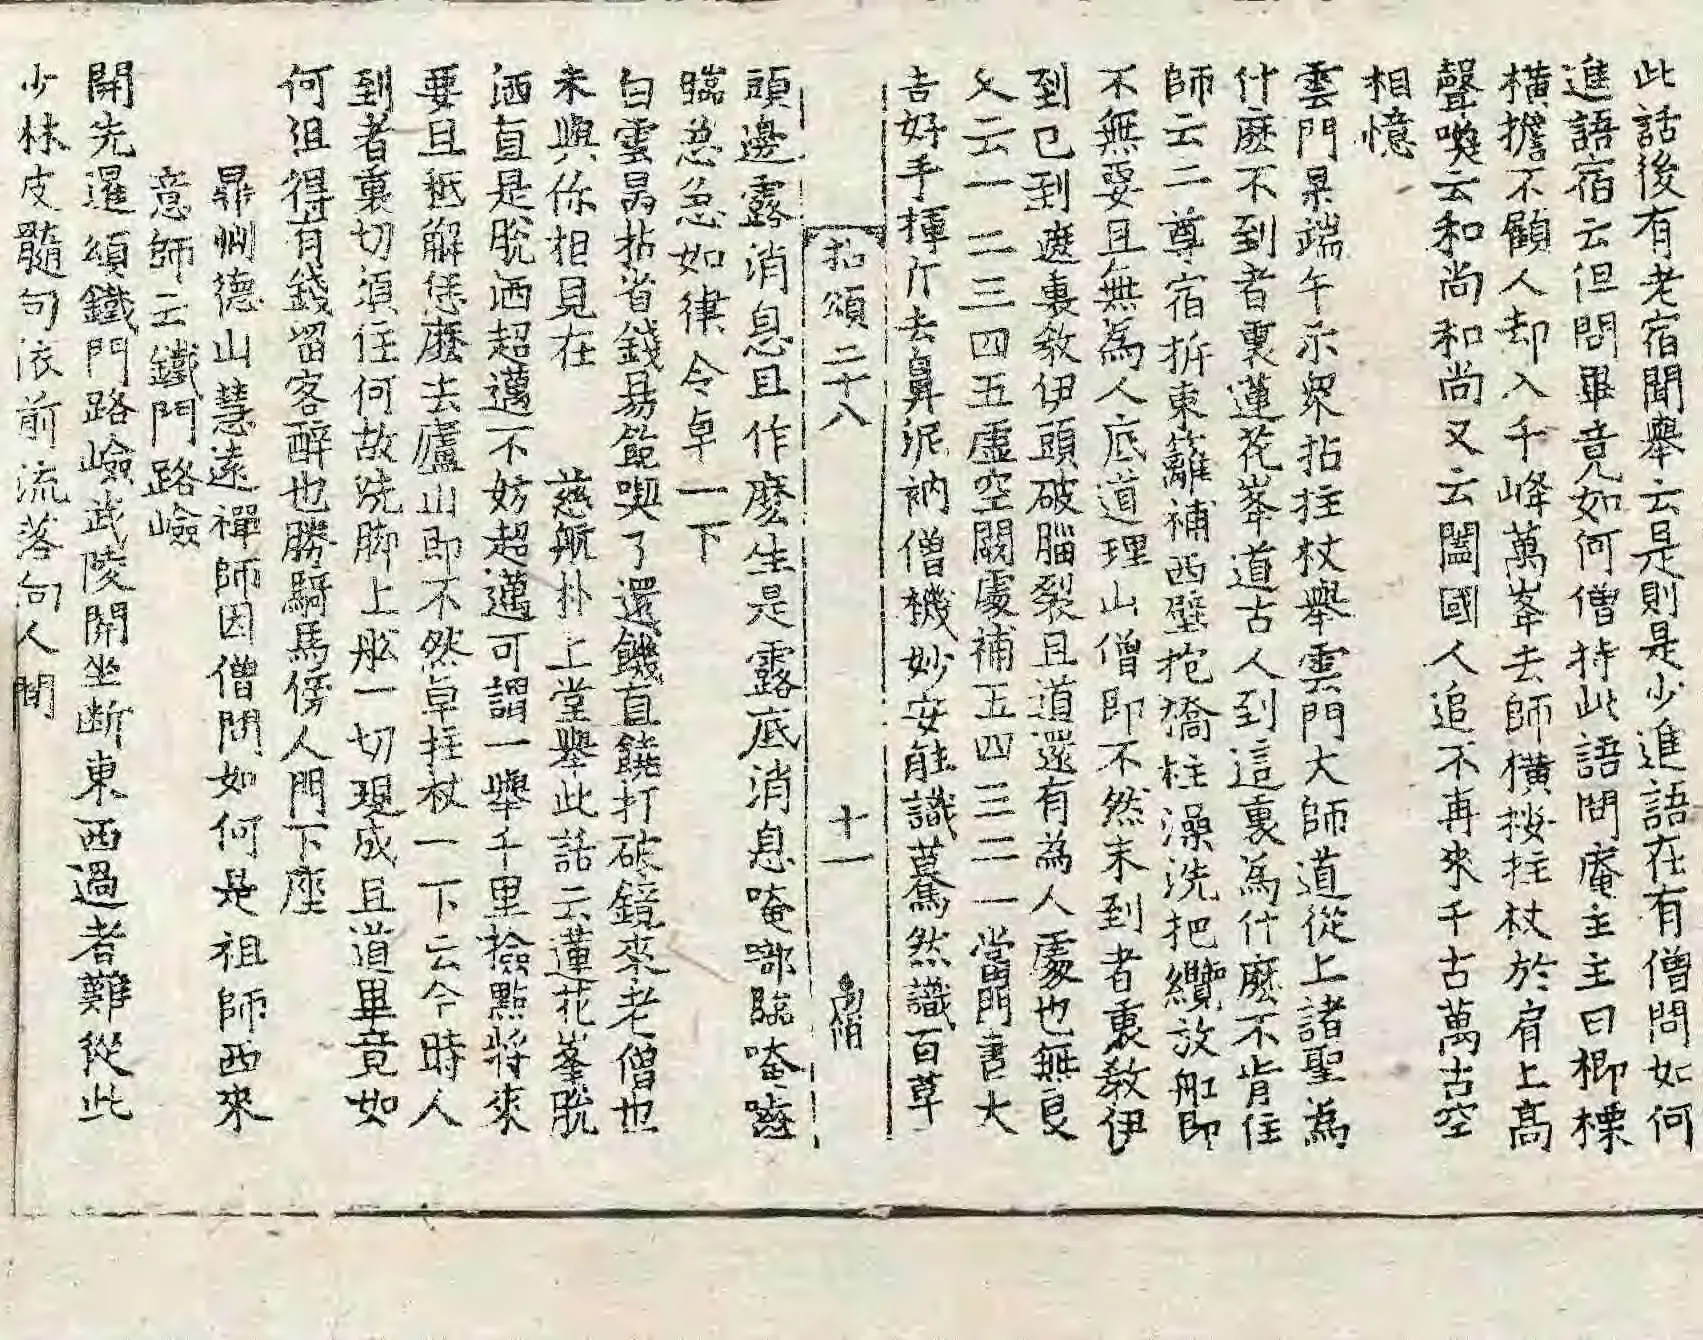 此話後有老宿聞舉云是則是少進語在有僧問如何
進語宿云但問畢竟如何僧持此語問庵主主曰楖㮚
橫擔不顧人却入千峰萬峯去師橫按拄杖於肩上高
聲喚云和尚和尚又云闔國人追不再來千古萬古空
相憶
雲門杲端午示眾拈拄杖舉雲門大師道從上諸聖為
什麽不到者裏蓮花峯道古人到這裏爲什麽不肯住
師云二尊宿拆東籬補西壁抱橋柱澡洗把纜放舡即
不無要且無為人底道理山僧即不然未到者裏敎伊
到已到這裏敎伊頭破腦裂且道還有為人處也無良
久云一二三四五虛空闕處補五四三二一當門書大
吉好手揮斤去鼻泥衲僧機妙安能識驀然識百草
拈頌二十八 十一
頭邊露消息且作麽生是露底消息唵㘕臨唵㘕
臨急急如律令卓一下
白雲昺拈省錢易飽喫了還饑直饒打破鏡來老僧也
未與你相見在 慈航朴上堂舉此話云蓮花峯脫
洒直是脫洒超邁不妨超邁可謂一舉千里撿點將來
要且秪解恁麽去廬山即不然卓拄杖一下云今時人
到者裏切須住何故蹺脚上舩一切現成且道畢竟如
何沮得有錢留客醉也勝騎馬傍人門下座
鼎州德山慧遠禪師因僧問如何是祖師西來
意師云鐵門路嶮
開先暹頌鐵門路嶮武陵開坐断東西過者難從此
少林皮髓句依前流落向人間